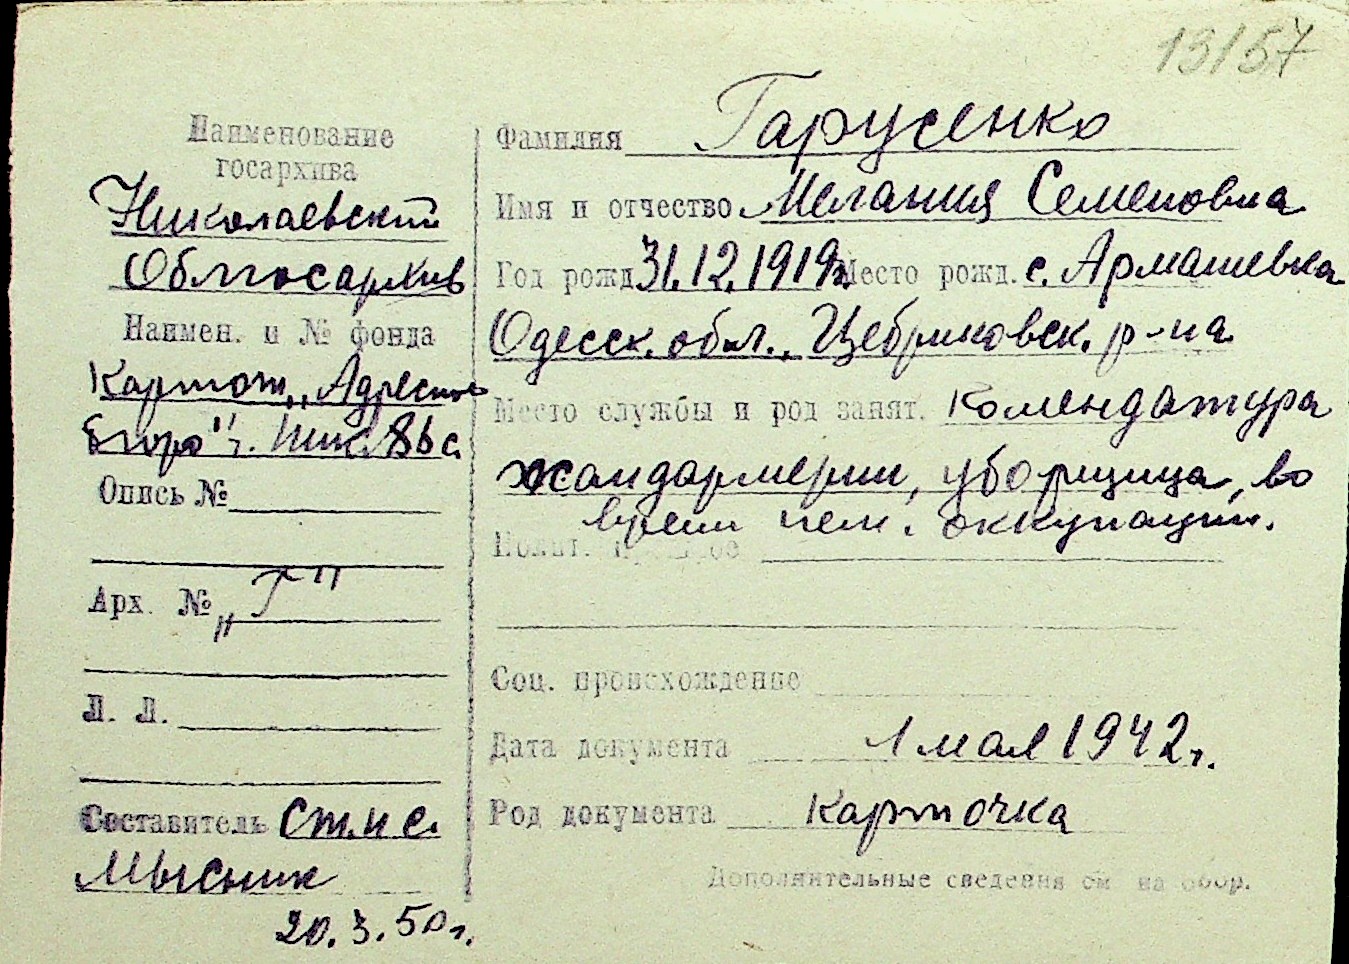 13/57
Наименование
госархива
Николаевский
Облгосархив
Наимен. и № фонда
Картот. „Адресное
Бюро" г. Ник.
Опись №
Арх. № „Г"
Л. Л.
Составитель ст. н с.
Мысник
20.3.50 г.
Фамилия Гарусенко
Имя и отчество Мелания Семеновна
Год рожд. 31.12.1919г. Место рожд. с. Армашевка
Одесск. обл., Цебриковск. р-на
Место службы и род занят. Комендатура
жандармерии, уборщица, во
время нем. оккупации.
Полит.
Соц. происхождение
Дата документа 1 мая 1942 г.
Род документа Карточка
Дополнительные сведения см на обор.